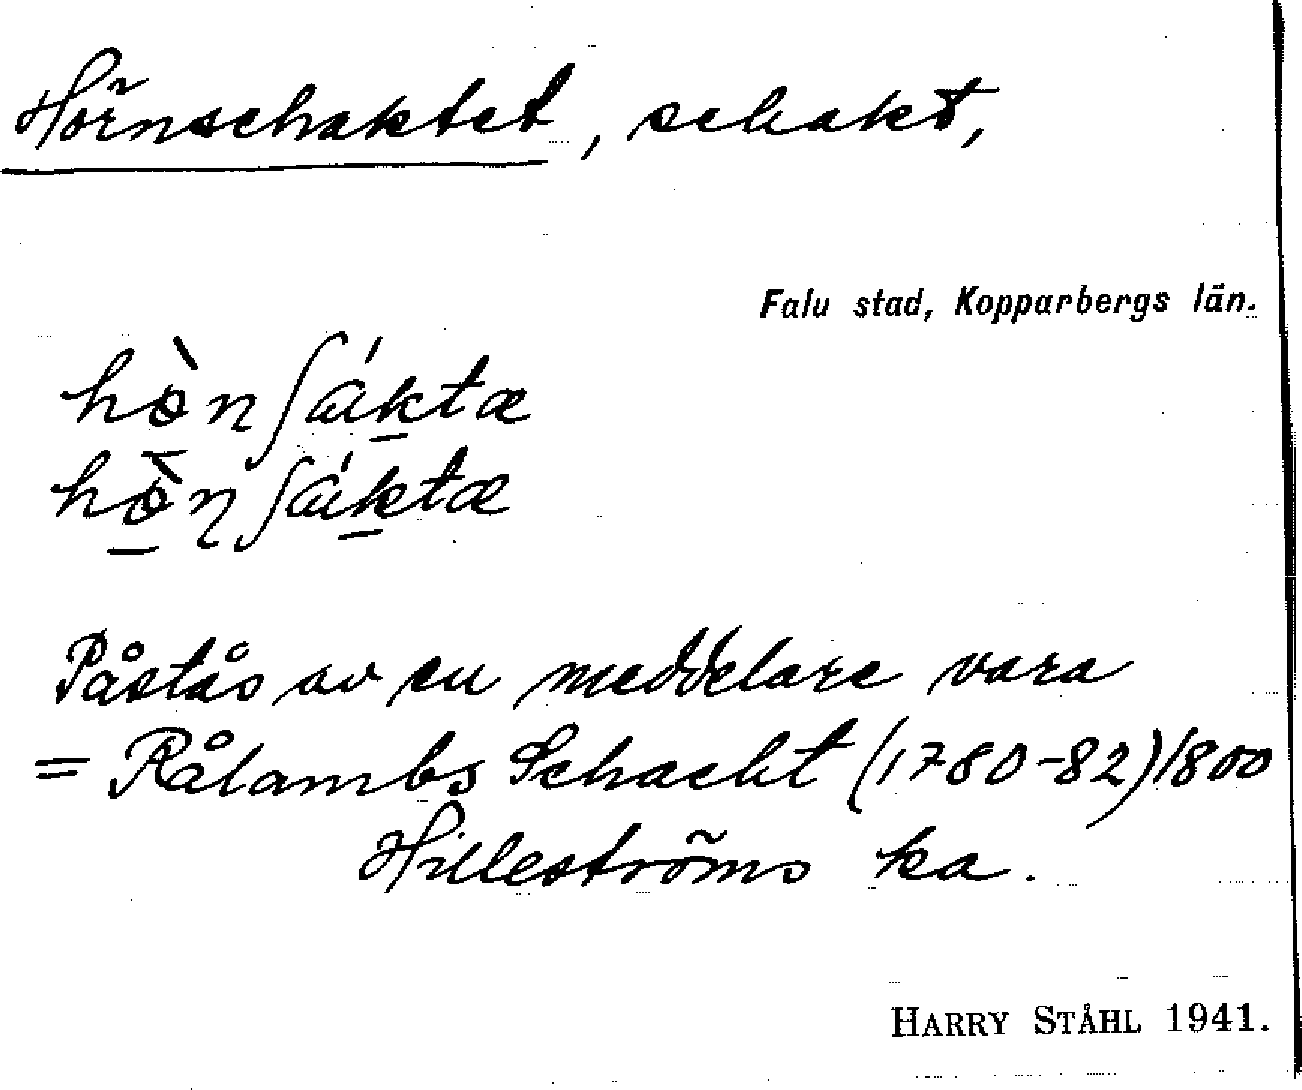 Hörnschaktet, schakt,
Falu stad, Kopparbergs län.
hὸ̀nʃáktæ
hὸ̀ṇʃáktæ
Påstås av en meddelare vara
= Rålambs Schacht (1780-82) 1800
Hilleströms ka.
HARRY STÅHL 1941.